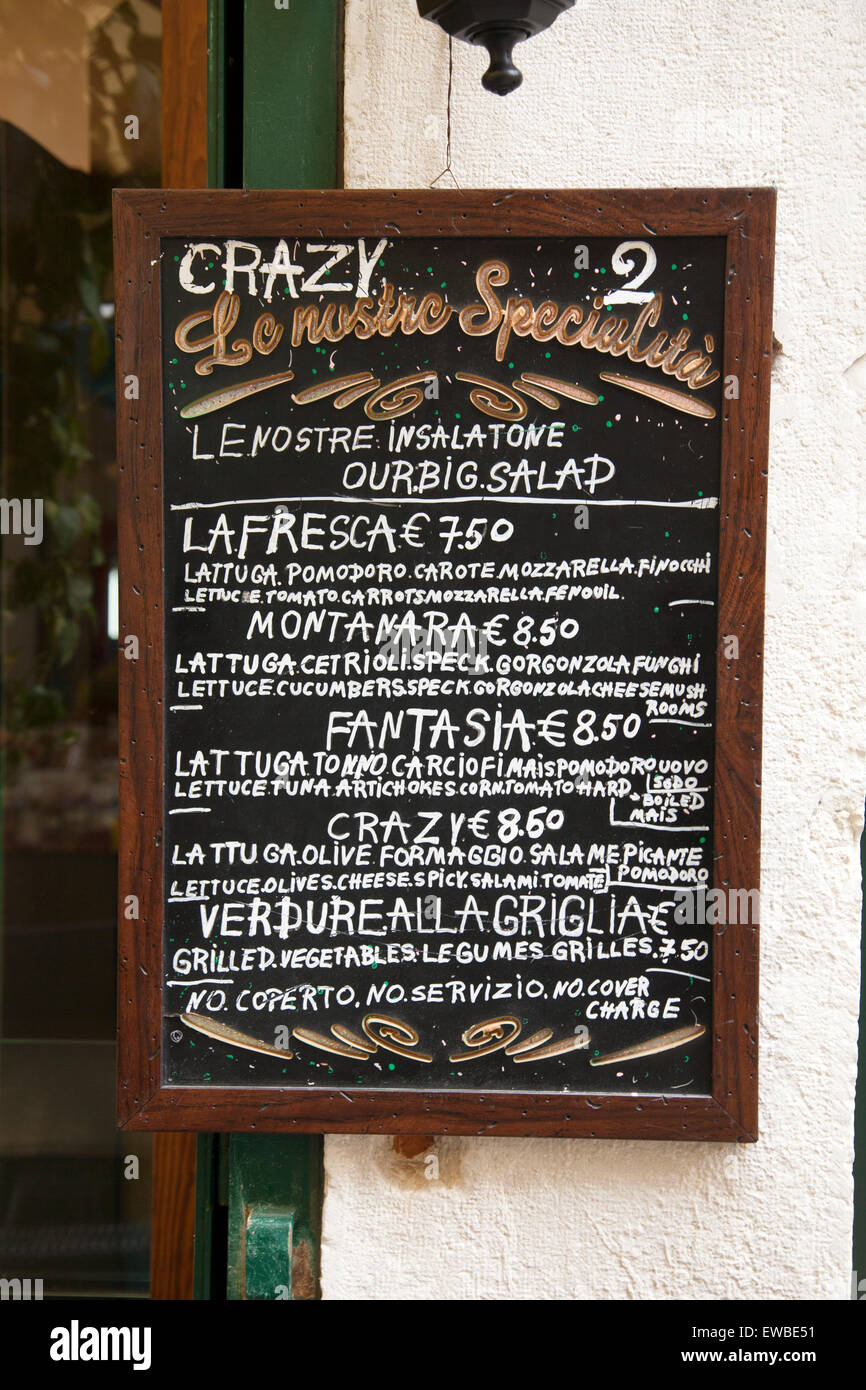 CRAZY 2
Le nostre Specialità
LE NOSTRE. INSALATONE
OUR.BIG.SALAD
LA FRESCA € 7.50
LATTUGA. POMODORO. CAROTE. MOZZARELLA. FINOCCHI
LETTUCE. TOMATO. CARROTS MOZZARELLA. FENOUIL.
MONTANARA € 8.50
LATTUGA. CETRIOLI. SPECK. GORGONZOLA FUNGHI
LETTUCE. CUCUMBERS. SPECK. GORGONZOLA CHEESE MUSH
ROOMS
FANTASIA € 8.50
LATTUGA TONNO. CARCIOFI MAIS POMODORO UOVO
SODO
LETTUCE. TUNA. ARTICHOKES. CORN. TOMATO HARD
BOILED
MAIS
CRAZY € 8.50
LATTUGA. OLIVE. FORMAGGIO. SALAME. PICANTE
POMODORO
LETTUCE. OLIVES. CHEESE. SPICY. SALAMI. TOMATE
VERDURE ALLA GRIGLIA €
GRILLED. VEGETABLES. LEGUMES GRILLES. 7.50
NO. COPERTO. NO. SERVIZIO. NO. COVER
CHARGE
alamy
www.alamy.com
Image ID: EWBE51